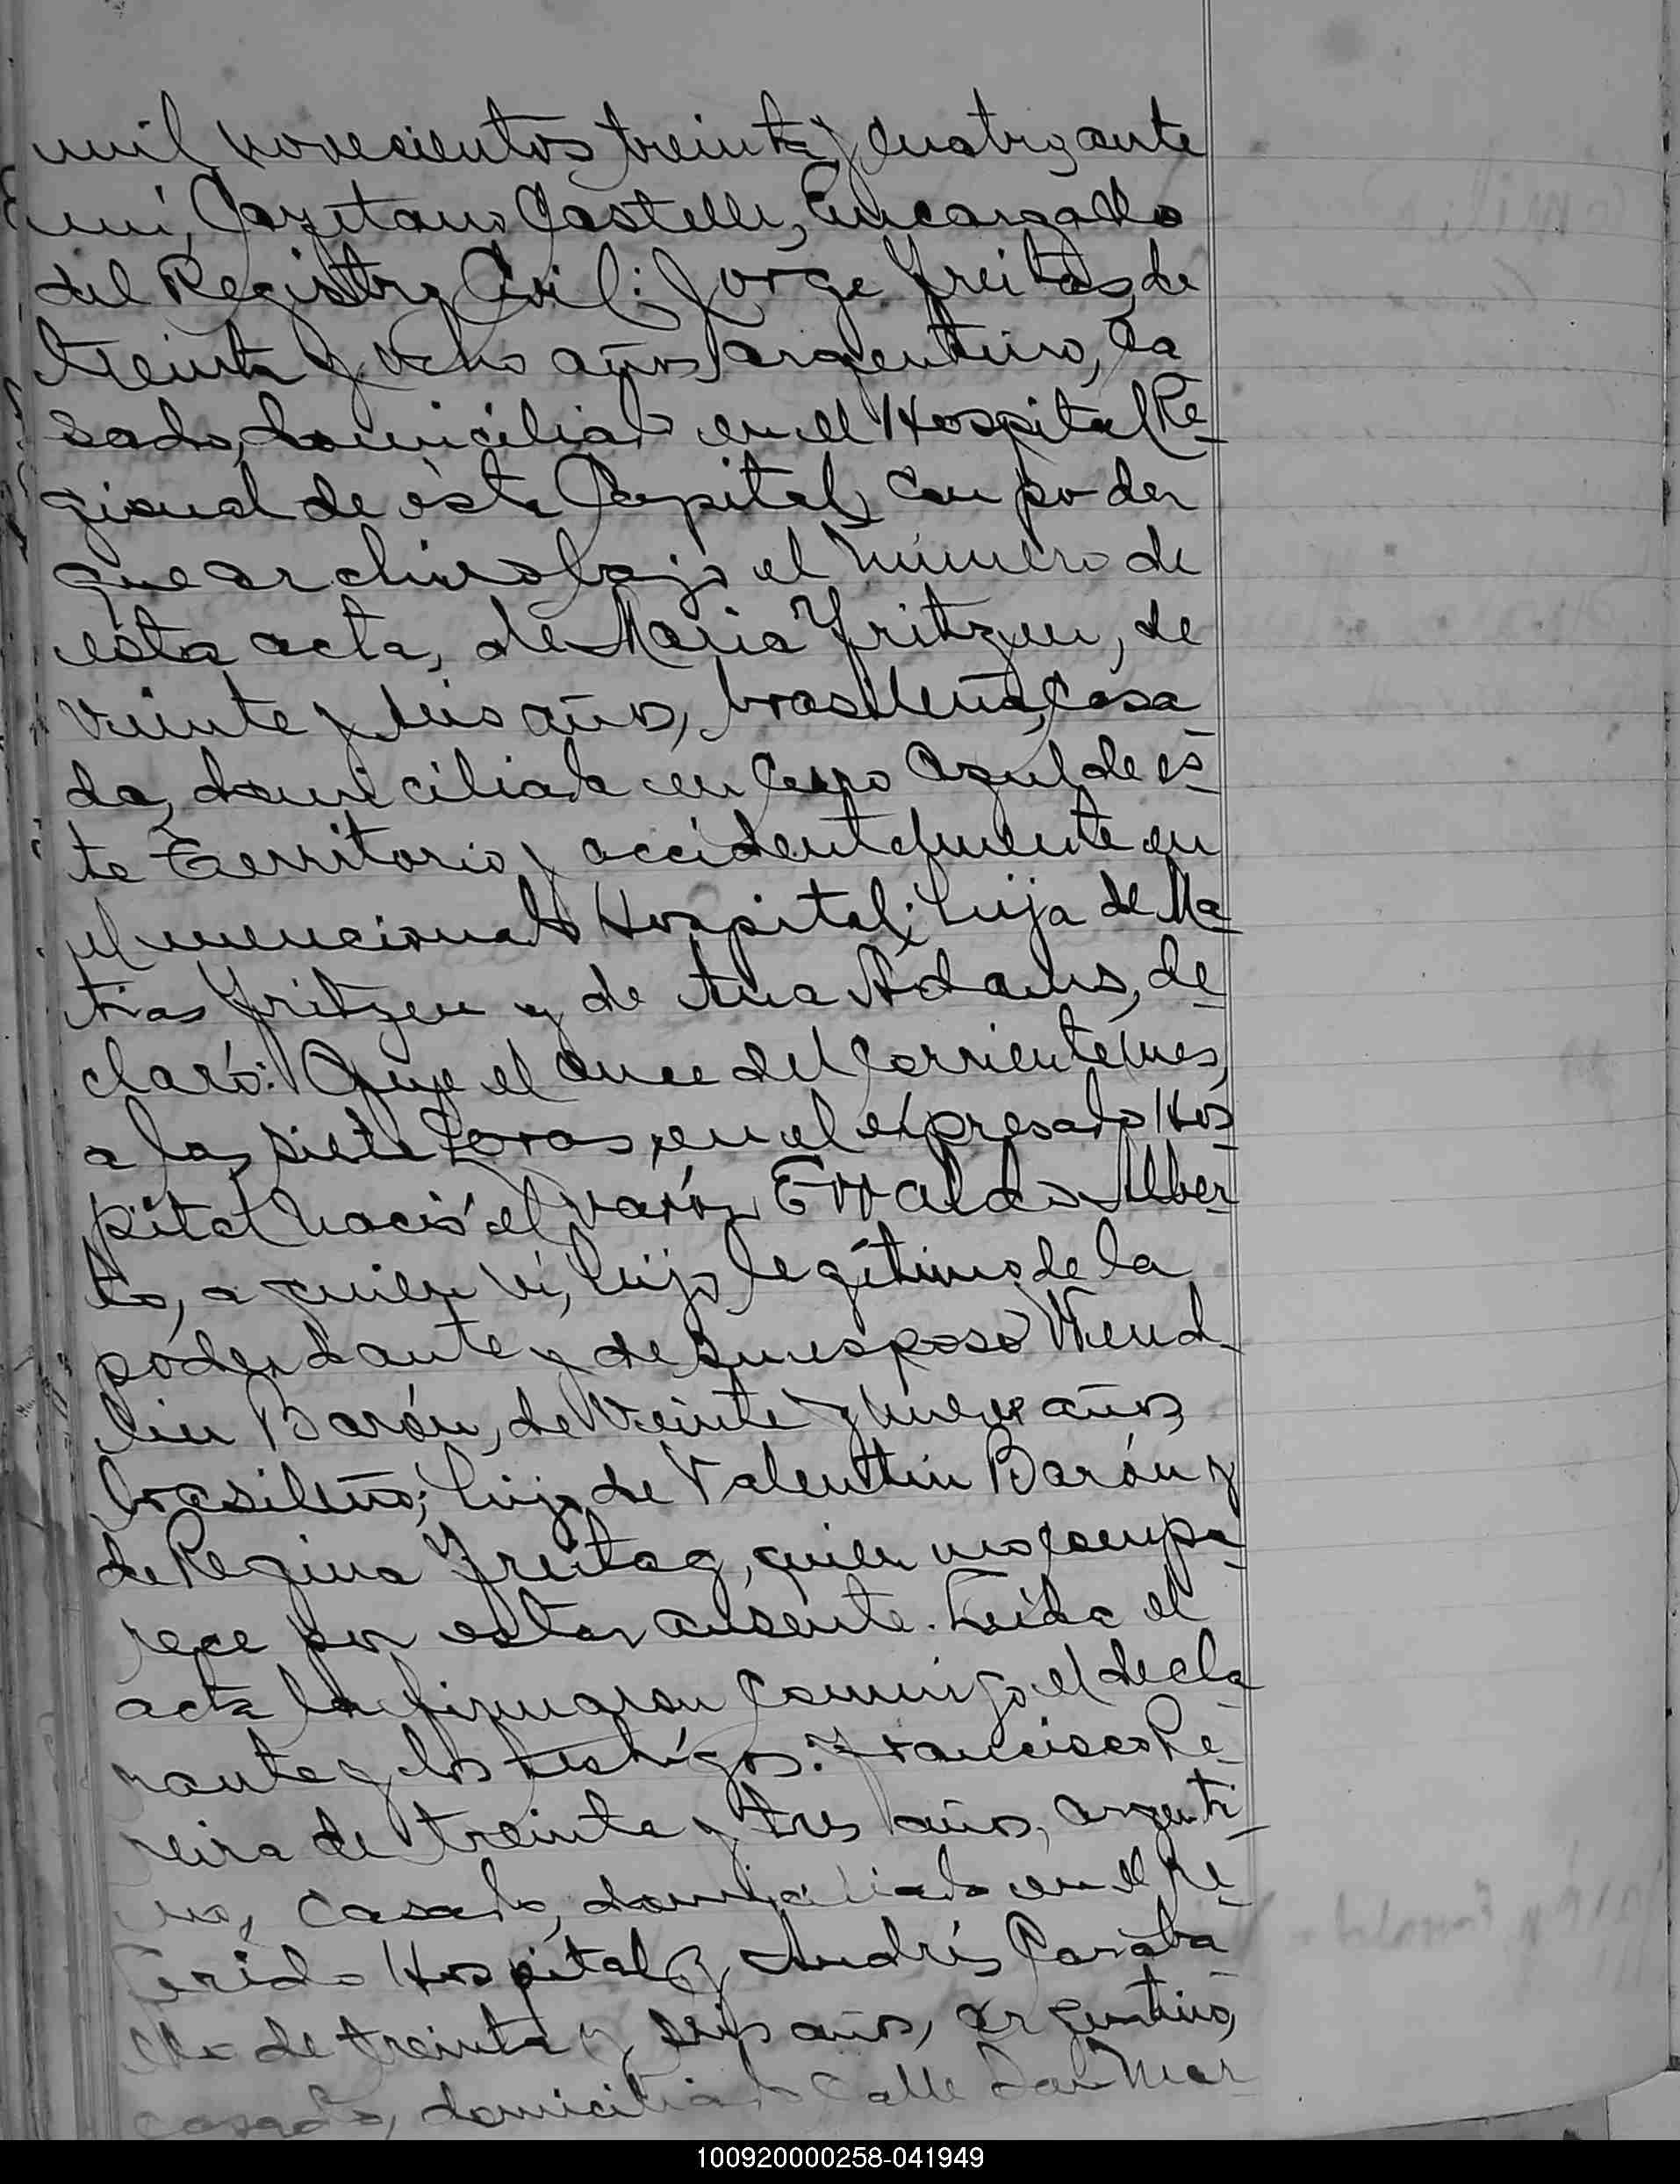 mil novecientos treinta y cuatro, ante
mí, Cayetano Castelli, Encargado
del Registro Civil: Jorge Freitas, de
treinta y ocho años, argentino, ca
sado, domiciliado en el Hospital Re-
gional de ésta Capital, con poder
que archivo bajo el número de
esta acta, de María Fritzen, de
veinte y seis años, brasileña, casa
da, domiciliada en Cerro Azul de és-
te Territorio y accidentalmente en
el mencionado Hospital; hija de Ma-
tias Fritzen y de Ana Adams, de-
claró: Que el once del corriente mes,
a las siete horas, en el expresado Hos-
pital nació el varón Ewaldo Alber-
to, a quien ví, hijo legítimo de la
poderdante y de su esposo Wend-
lin Barón, de veinte y nueve años,
brasileño; hijo de Valentin Barón y
de Regina Freitag, quien no compa-
rece por estar ausente. Leída el
acta la firmaron conmigo el decla-
rante y los testigos: Francisco Pe-
reira de treinta y tres años, argenti-
no, casado, domiciliado en el re-
ferido Hospital y Andrés Caraba
de treinta y seis años, argentino,
casado, domiciliado calle San Mar-
100920000258-041949